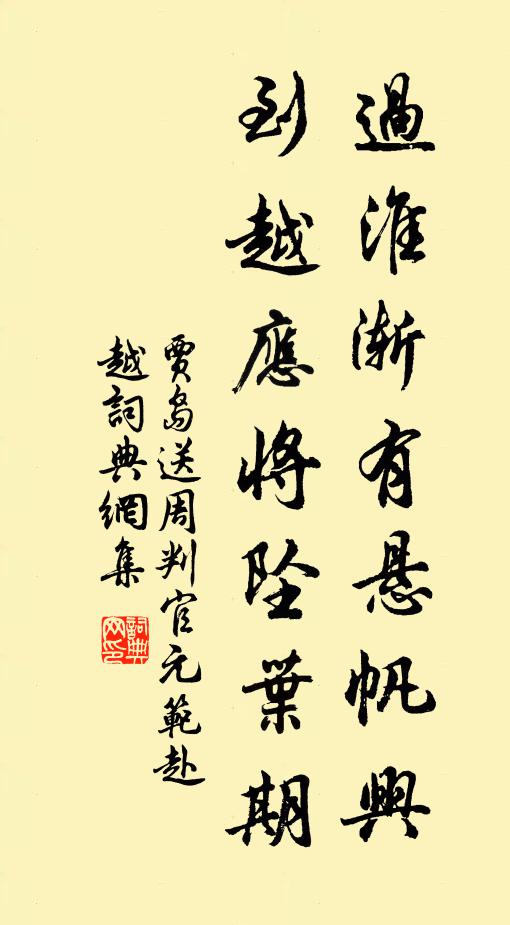 過淮漸有懸帆興
到越應將墜葉期
賈島送周判官元範赴
越詞典網集
詞典網印